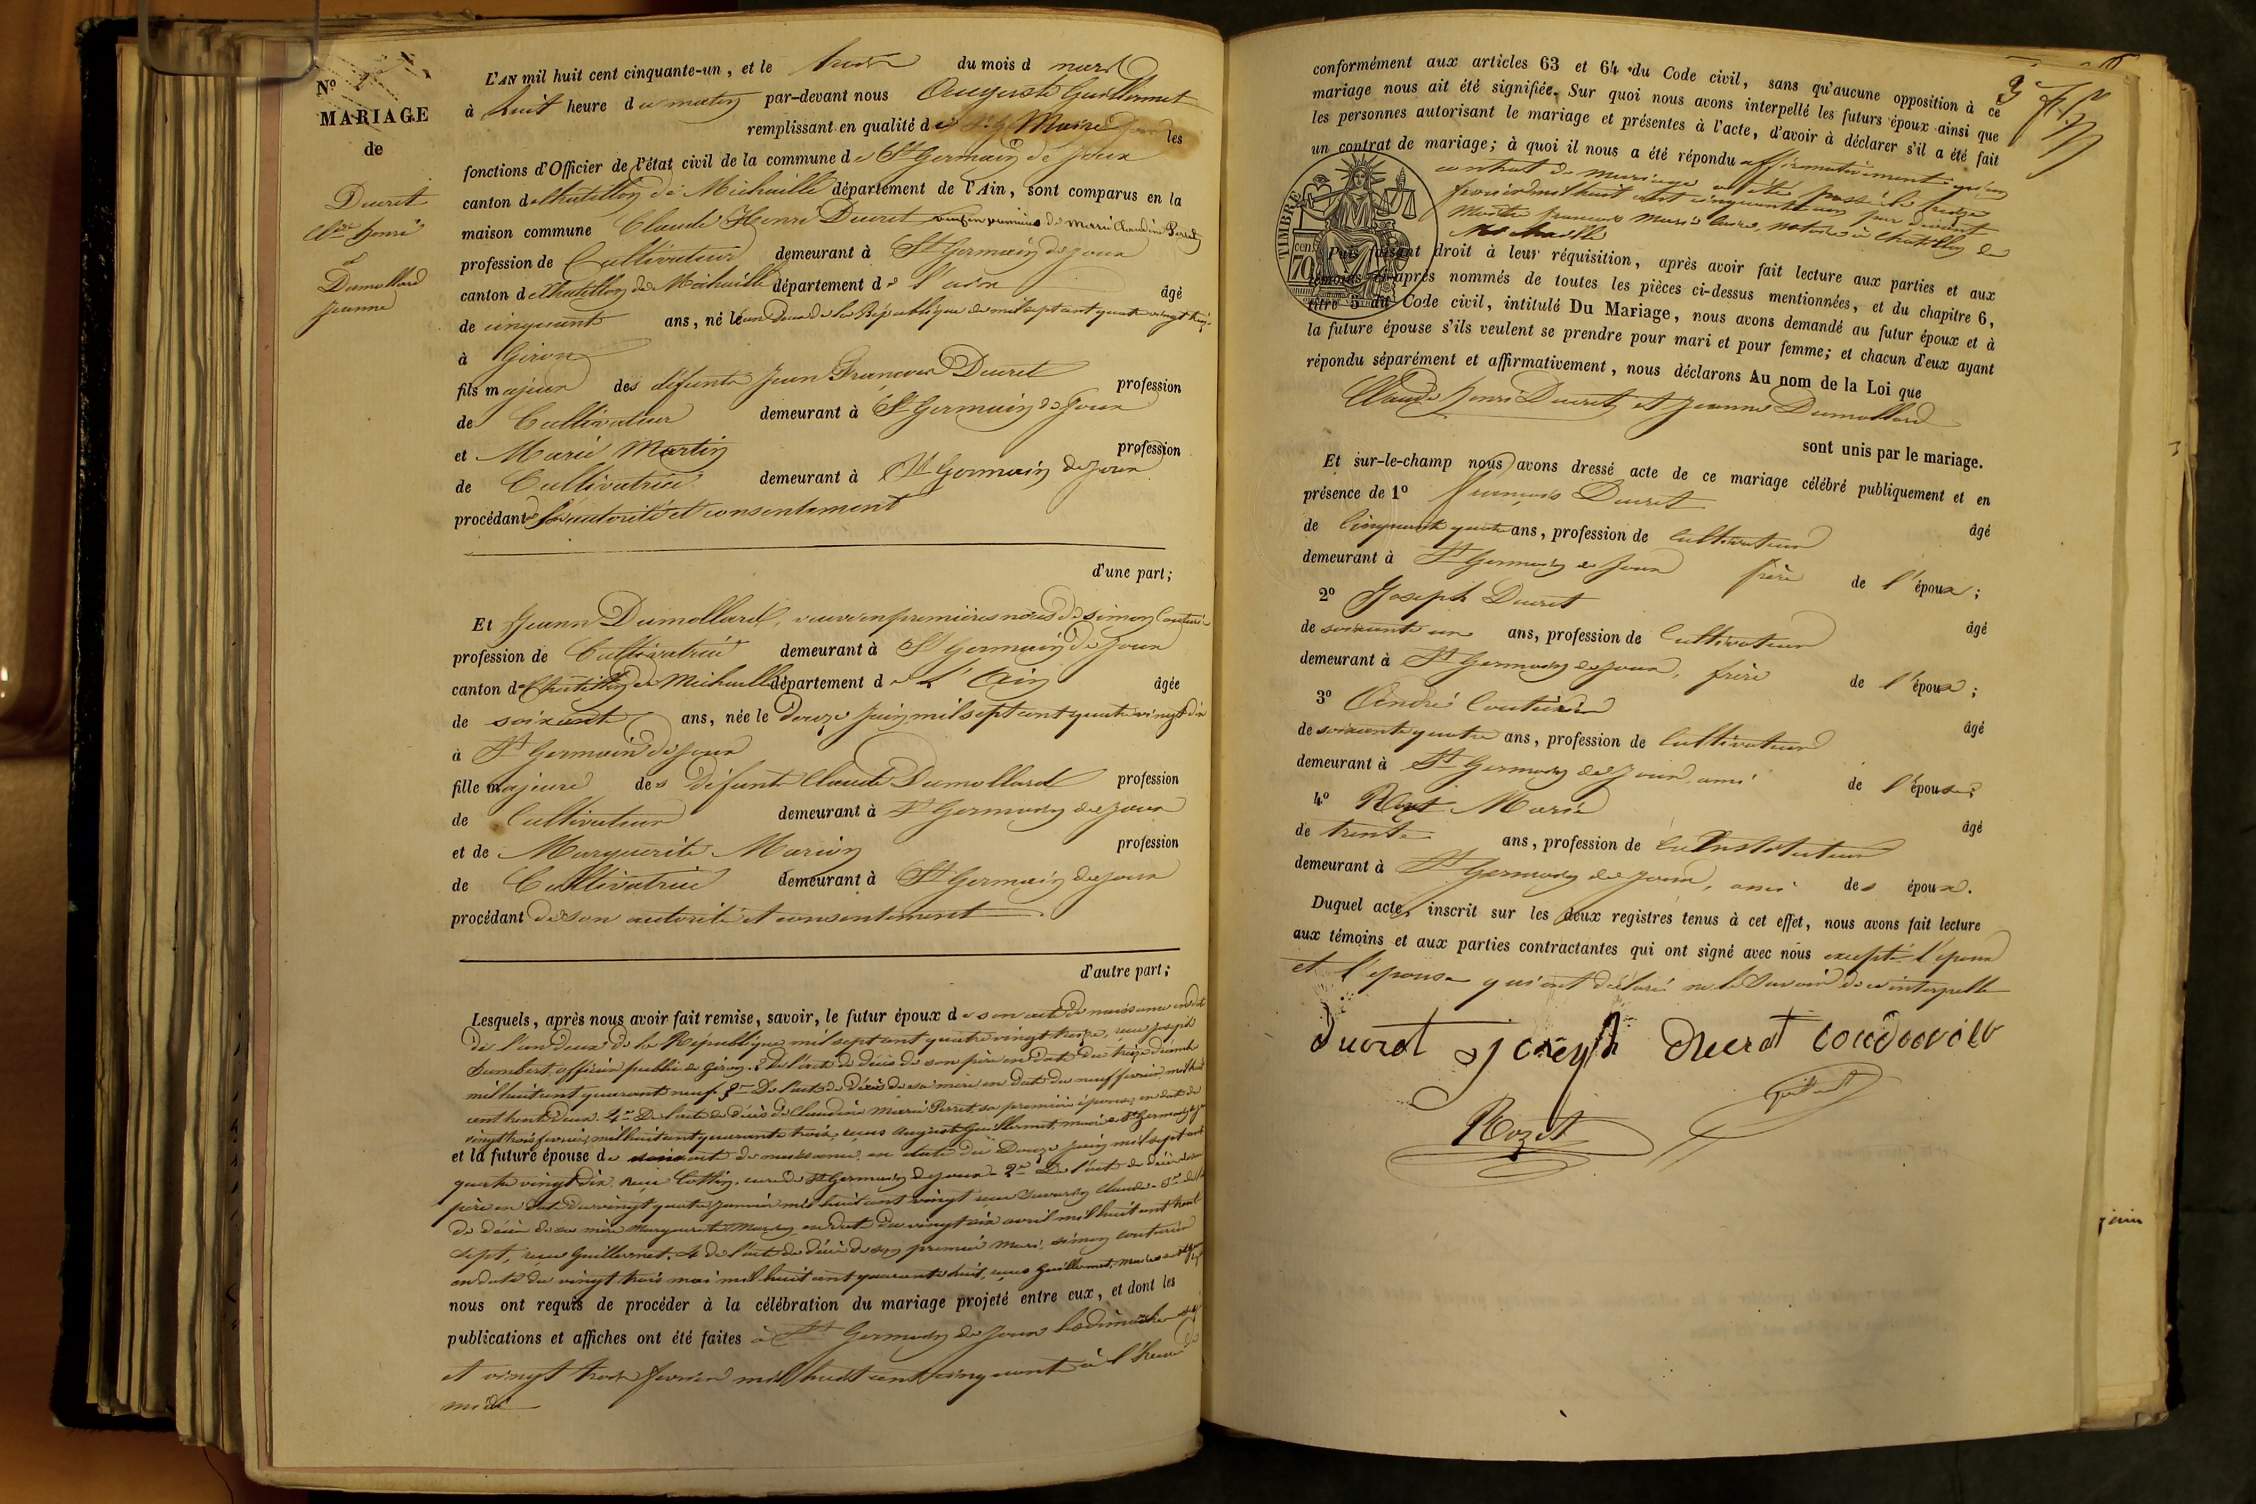 N°
MARIAGE
de
Ducret
Cde henri
et
Dumollard
Jeanne
L'AN mil huit cent cinquante-un, et le trois du mois d mars
à huit heure du matin par-devant nous Auguste Guillermet
remplissant en qualité de Maire les
fonctions d'Officier de l'état civil de la commune de St Germain de Joux
canton de Chatillon de Michaille département de l'Ain, sont comparus en la
maison commune Claude Henri Ducret veuf en premières de Marie Claudine Perret
profession de Cultivateur demeurant à St Germain de Joux
canton de Chatillon de Michaille département de l'ain âgé
de cinquante ans, né l'an deux de la République mil sept cent quatre vingt
à Giron
fils majeur des défunts Jean François Ducret profession
de Cultivateur demeurant à St Germain de Joux
et Marie Martin profession
de Cultivatrice demeurant à St Germain de Joux
procédant de son autorité et consentement
d'une part;
Et Jeanne Dumollard, veuve en premières noces de Simon Couturier
profession de Cultivatrice demeurant à St Germain de Joux
canton de Chatillon de Michaille département de l'Ain âgée
de soixante ans, née le douze juin mil sept cent quatre vingt dix
à St Germain de Joux
fille majeure des défunts Claude Dumollard profession
de Cultivateur demeurant à St Germain de Joux
et de Marguerite Marion profession
de Cultivatrice demeurant à St Germain de Joux
procédant de son autorité et consentement
d'autre part;
Lesquels, après nous avoir fait remise, savoir, le futur époux de son acte de naissance en date
de l'an deux de la République mil sept cent quatre vingt treize, reçu Joseph
Humbert officier public de Giron. 2 De l'acte de décès de son père en date du treize décembre
mil huit cent quarante neuf. 3 De l'acte de décès de sa mère en date du neuf février mil huit
cent trente deux. 4 De l'acte de décès de Claudine Marie Perret sa première épouse, en date du
vingt trois février mil huit cent quarante trois, reçus Auguste Guillermet, maire de St Germain de Joux
et la future épouse de naissance en date du Douze juin mil sept cent
quatre vingt dix, reçu Cottin, curé de St Germain de Joux. 2 De l'acte de décès de son
père en date du vingt quatre janvier mil huit cent vingt reçu Claude. 3 de l'acte
de décès de sa mère Marguerite Marion, en date du vingt six avril mil huit cent trente
sept, reçu Guillermet. 4 de l'acte de décès de son premier mari, Simon Couturier
en date du vingt trois mai mil huit cent quarante huit, reçus Guillermet, maire
nous ont requis de procéder à la célébration du mariage projeté entre eux, et dont les
publications et affiches ont été faites à St Germain de Joux les dimanches
et vingt trois février mil huit cent cinquante à l'heure de
midi
conformément aux articles 63 et 64 du Code civil, sans qu'aucune opposition à ce
mariage nous ait été signifiée. Sur quoi nous avons interpellé les futurs époux ainsi que
les personnes autorisant le mariage et présentes à l'acte, d'avoir à déclarer s'il a été fait
un contrat de mariage; à quoi il nous a été répondu affirmativement qu'un
contrat de mariage a été passé le
février mil huit cent cinquante un par devant
Maître François Marie notaire à Chatillon de
Michaille
TIMBRE
70 cent.
Puis faisant droit à leur réquisition, après avoir fait lecture aux parties et aux
témoins ci-après nommés de toutes les pièces ci-dessus mentionnées, et du chapitre 6,
titre 5 du Code civil, intitulé Du Mariage, nous avons demandé au futur époux et à
la future épouse s'ils veulent se prendre pour mari et pour femme; et chacun d'eux ayant
répondu séparément et affirmativement, nous déclarons Au nom de la Loi que
Claude henri Ducret et Jeanne Dumollard
sont unis par le mariage.
Et sur-le-champ nous avons dressé acte de ce mariage célébré publiquement et en
présence de 1° François Ducret âgé
de Cinquante quatre ans, profession de Cultivateur
demeurant à St Germain de Joux frère de l'époux;
2° Joseph Ducret âgé
de soixante un ans, profession de Cultivateur
demeurant à St Germain de Joux, frère de l'époux;
3° André Couturier âgé
de soixante quatre ans, profession de Cultivateur
demeurant à St Germain de Joux, ami de l'épouse;
4° Rozet Marie âgé
de trente ans, profession de Instituteur
demeurant à St Germain de Joux, ami des époux.
Duquel acte, inscrit sur les deux registres tenus à cet effet, nous avons fait lecture
aux témoins et aux parties contractantes qui ont signé avec nous excepté l'époux
et l'épouse qui ont déclaré ne le savoir de ce interpellé
ducret Joseph Ducret
Rozet